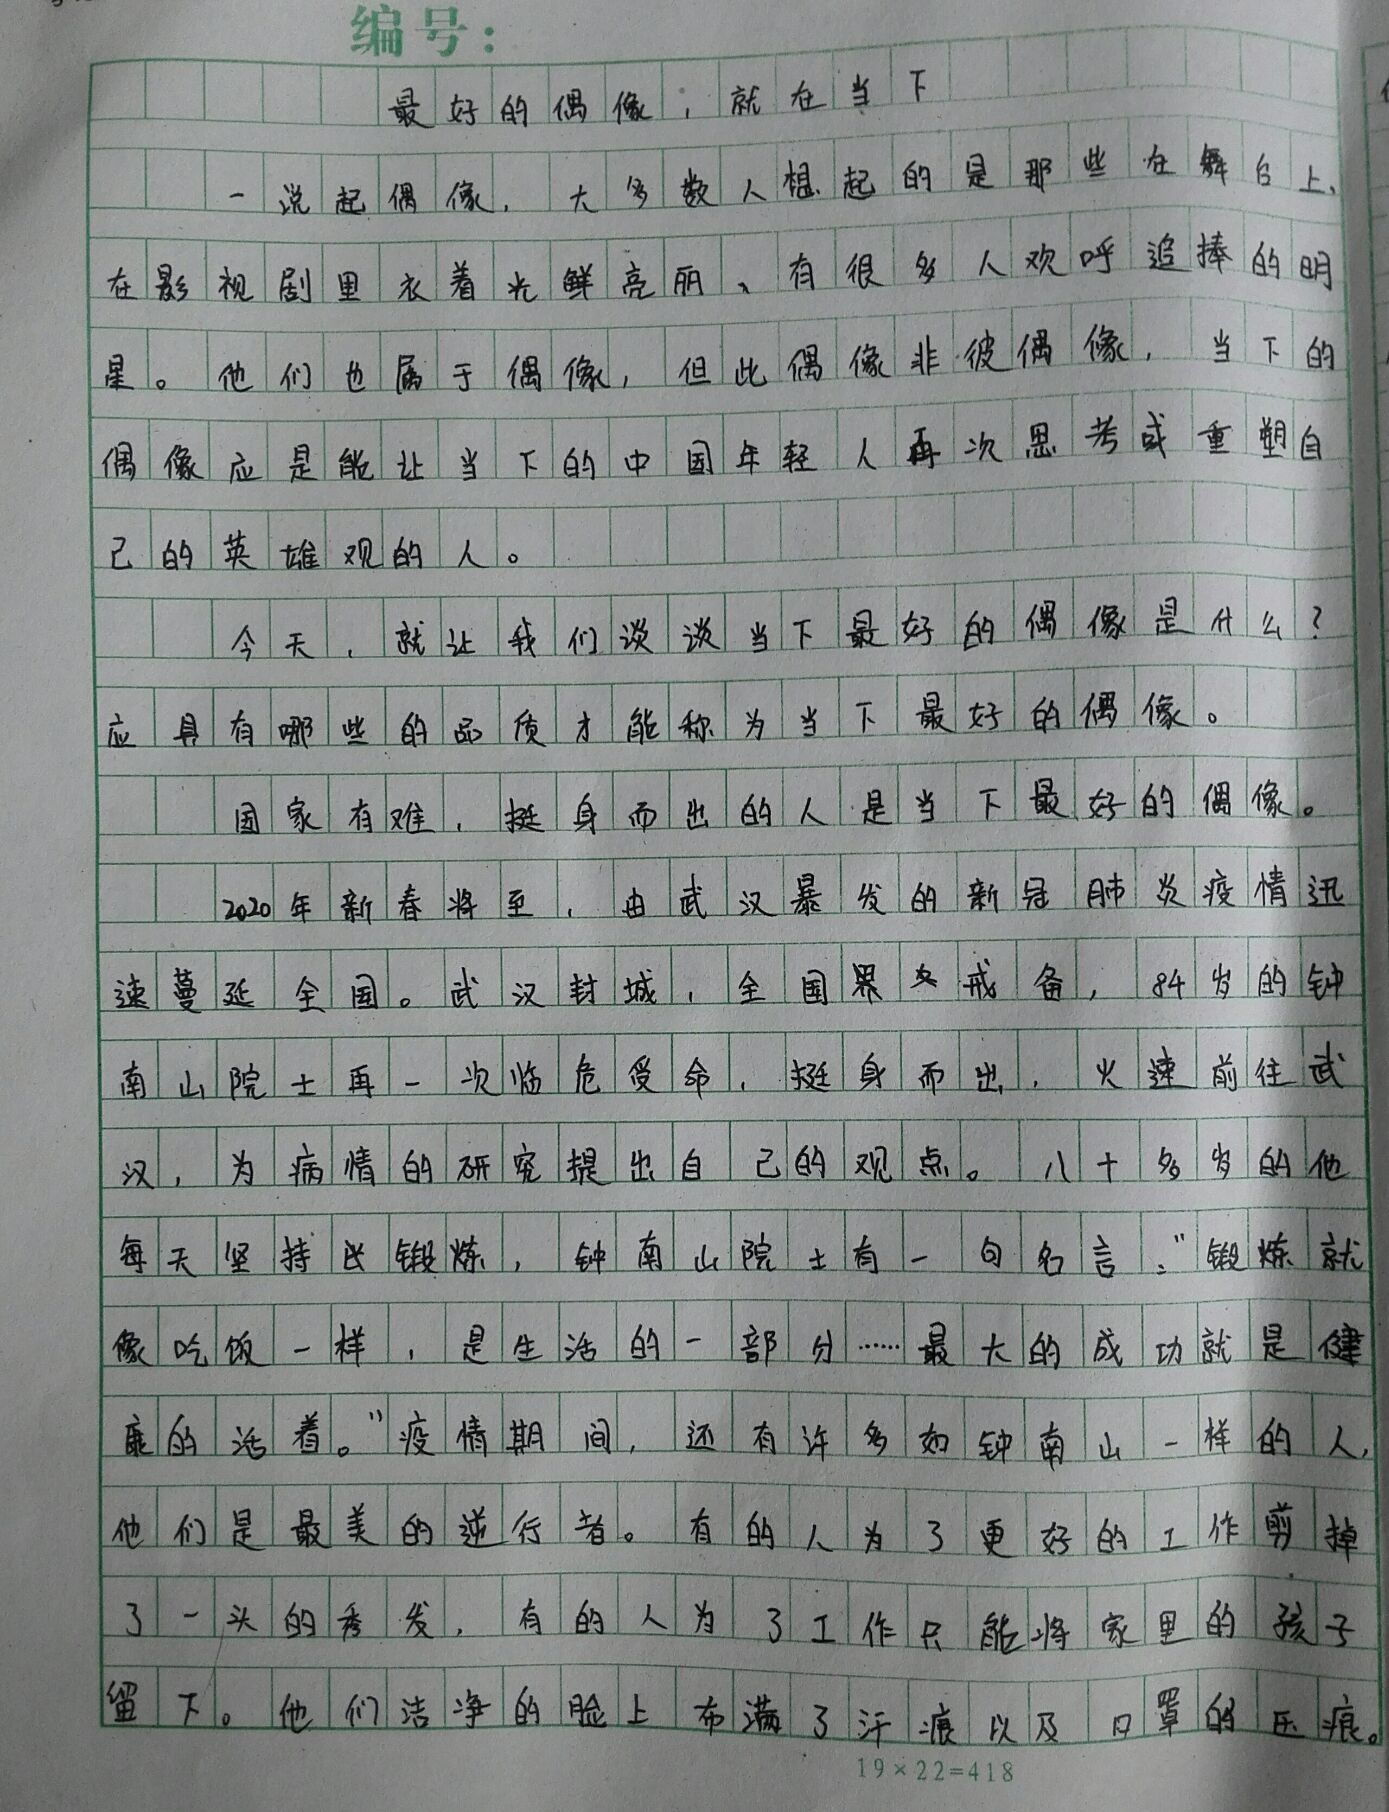 编号:
最好的偶像,就在当下
一说起偶像,大多数人想起的是那些在舞台上、
在影视剧里衣着光鲜亮丽、有很多人欢呼追捧的明
星。他们也属于偶像,但此偶像非彼偶像,当下的
偶像应是能让当下的中国年轻人再次思考或重塑自
己的英雄观的人。
今天,就让我们谈谈当下最好的偶像是什么?
应具有哪些的品质才能称为当下最好的偶像。
国家有难,挺身而出的人是当下最好的偶像。
2020年新春将至,由武汉暴发的新冠肺炎疫情迅
速蔓延全国。武汉封城,全国界戒备,84岁的钟
南山院士再一次临危受命,挺身而出,火速前往武
汉,为病情的研究提出自己的观点。八十多岁的他
每天坚持锻炼,钟南山院士有一句名言:"锻炼就
像吃饭一样,是生活的一部分……最大的成功就是健
康的活着。"疫情期间,还有许多如钟南山一样的人,
他们是最美的逆行者。有的人为了更好的工作剪掉
了一头的秀发,有的人为了工作只能将家里的孩子
留下。他们洁净的脸上布满了汗痕以及口罩的压痕。
19×22=418